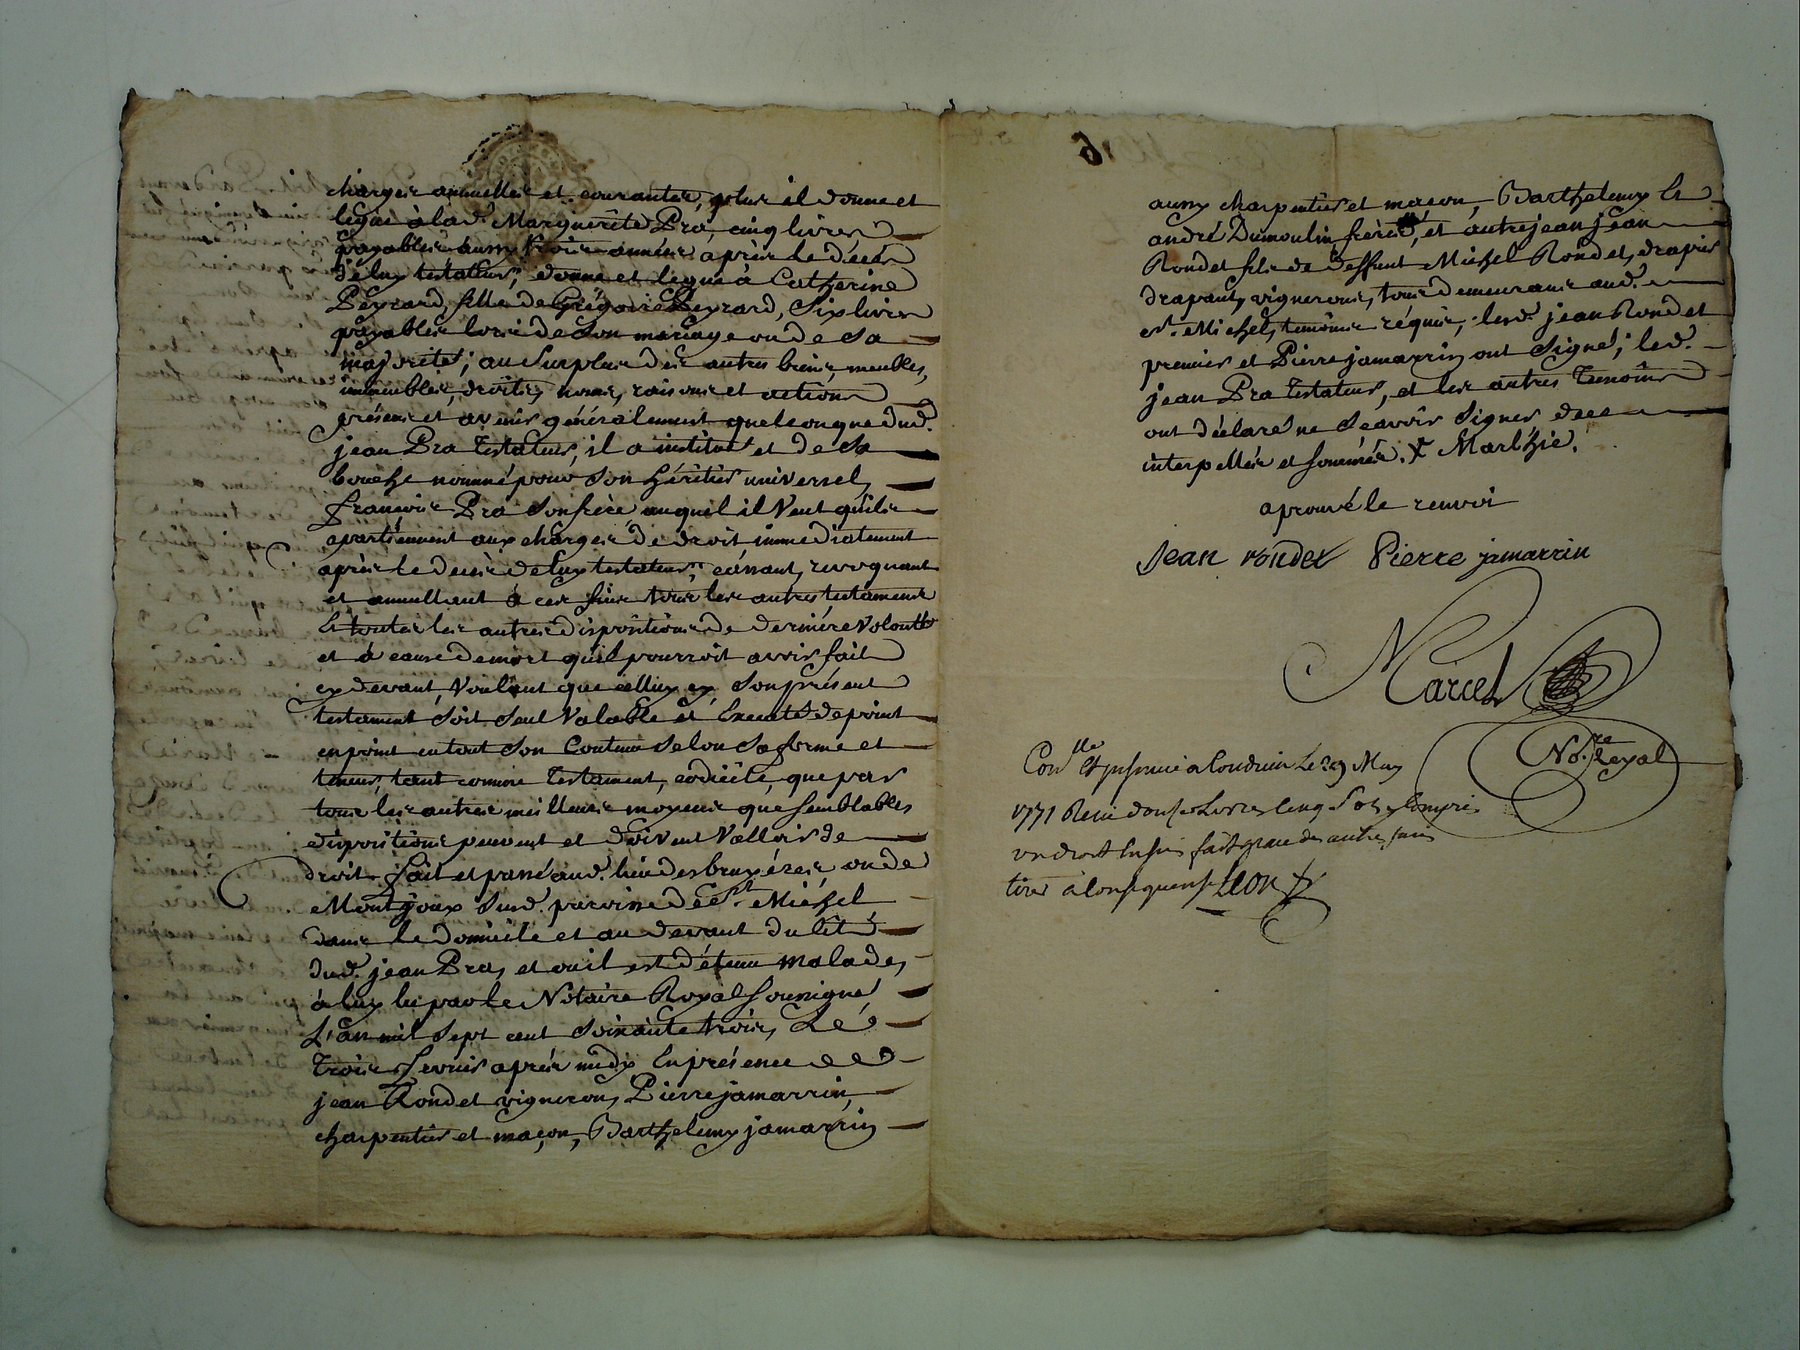 charges annuelles et courantes, plus il donne et
legue à lad.e Margueritte Pra, cinq livres
payables aussy trois années après le décés
de luy testateur, donne et legue à Catherine
Peyrard fille de Grégoire Peyrard, Six livres
payables lors de Son mariage ou de Sa
majorité; au Surplus des autres biens, meubles,
immeubles, droits, noms, raisons et actions
présens et avenir généralement quelconque dud.
jean Pra Testateur, il a institué et de Sa
bouche nommé pour Son héritier universel
François Pra Son frère auquel il Veut qu'ils
apartiennent aux charges de droit immediatement
après le decès de luy testateur, cassant, revoquant
et annullant à ces fins tous les autres testamens
Et toutes les autres dispositions de dernière Volonté
et à cause de mort qu'il pourroit avoir fait
cy devant Voulant que celluy cy Son présent
testament Soit Seul Valable et Executé de point
en point en tout Son Contenu Selon Sa forme et
teneur, tant comme Testament, codicile, que par
tous les autres meilleurs moyens que Semblables
dispositions peuvent et doivent Valloir de
droit. fait et passé aud. lieu des bruyéres ou de
Montgoux Sud. paroisse de St. Miéhel
dans le Domicile et au devant du lit
dud. jean Pra, et ou il est détenu malade,
à luy lu par le Notaire Royal Soussigné
L'an mil Sept cent Soixante trois, Le
Trois fevrier après midy En présence de
jean Rondet vigneron, Pierre jamarrin,
charpentier et maçon, Barthélemy jamarrin
aussy charpentier et maçon, Barthelemy Et
andré Dumoulin frères, et autre jean jean
Rondet fils de deffunt Miéhel Rondet,
drapant, vignerons, tous demeurans aud.
St. Miéhel, temoins réquis, lesd. jean Rondet
premier et Pierre jamarrin ont Signé; led.
jean Pra Testateur, et les autres Temoins
ont déclaré ne Sçavoir Signer de ce
interpellés et Sommés.
aprouvé le renvoi
Jean rondet Pierre jamarrin
Marcel
No.re Royal
Con.lle Et insinué a Condrieu Le 29 May
1771 Reçu douze Livres Cinq Sols y Compris
un droit En Sus fait grace des autres Sans
tirer à Consequense